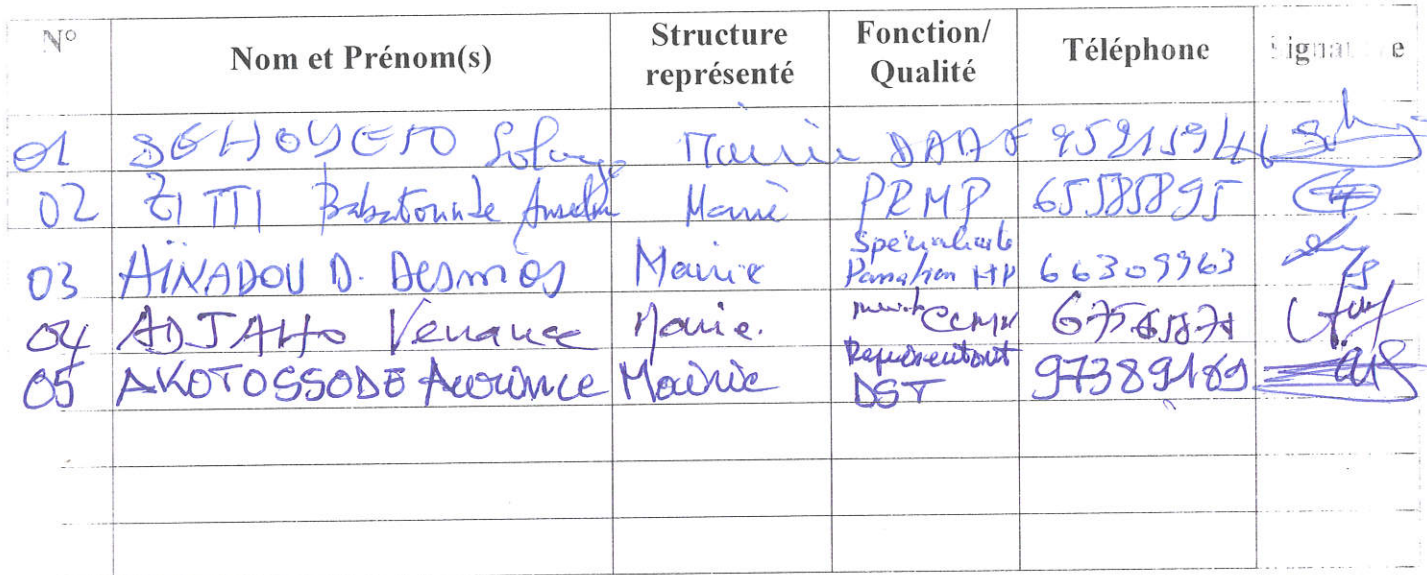 N° Nom et Prénom(s) Structure représenté Fonction/ Qualité Téléphone Signature
01 Mairie DAAF 95915944
02 ZITTI Babatounde Mairie PRMP 65585895
03 AÏNADOU D. Mairie Spécialiste Passation MP 66309963
04 ADJAHO Venance Mairie CCMP
05 AKOTOSSODE Mairie Représentant DST 97389169